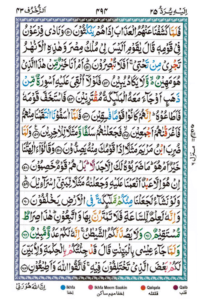 اِلَیْهِ یُرَدُّ ٢٥ ٤٩٤ الزُّخْرُف ٤٣
فَلَمَّا كَشَفْنَا عَنْهُمُ الْعَذَابَ اِذَا هُمْ يَنْكُثُوْنَ وَنَادٰى فِرْعَوْنُ
فِيْ قَوْمِهٖ قَالَ يٰقَوْمِ اَلَيْسَ لِيْ مُلْكُ مِصْرَ وَهٰذِهِ الْاَنْهٰرُ
تَجْرِيْ مِنْ تَحْتِيْ اَفَلَا تُبْصِرُوْنَ اَمْ اَنَا خَيْرٌ مِّنْ هٰذَا الَّذِيْ
هُوَ مَهِيْنٌ وَّلَا يَكَادُ يُبِيْنُ فَلَوْلَآ اُلْقِيَ عَلَيْهِ اَسْوِرَةٌ مِّنْ
ذَهَبٍ اَوْ جَآءَ مَعَهُ الْمَلٰٓئِكَةُ مُقْتَرِنِيْنَ فَاسْتَخَفَّ قَوْمَهٗ
فَاَطَاعُوْهُ اِنَّهُمْ كَانُوْا قَوْمًا فٰسِقِيْنَ فَلَمَّآ اٰسَفُوْنَا انْتَقَمْنَا
مِنْهُمْ فَاَغْرَقْنٰهُمْ اَجْمَعِيْنَ فَجَعَلْنٰهُمْ سَلَفًا وَّمَثَلًا لِّلْاٰخِرِيْنَ
وَلَمَّا ضُرِبَ ابْنُ مَرْيَمَ مَثَلًا اِذَا قَوْمُكَ مِنْهُ يَصِدُّوْنَ وَقَالُوْٓا ءَاٰلِهَتُنَا
خَيْرٌ اَمْ هُوَ مَا ضَرَبُوْهُ لَكَ اِلَّا جَدَلًا بَلْ هُمْ قَوْمٌ خَصِمُوْنَ
اِنْ هُوَ اِلَّا عَبْدٌ اَنْعَمْنَا عَلَيْهِ وَجَعَلْنٰهُ مَثَلًا لِّبَنِيْٓ اِسْرَآءِيْلَ
وَلَوْ نَشَآءُ لَجَعَلْنَا مِنْكُمْ مَّلٰٓئِكَةً فِي الْاَرْضِ يَخْلُفُوْنَ
وَاِنَّهٗ لَعِلْمٌ لِّلسَّاعَةِ فَلَا تَمْتَرُنَّ بِهَا وَاتَّبِعُوْنِ هٰذَا صِرَاطٌ
مُّسْتَقِيْمٌ وَلَا يَصُدَّنَّكُمُ الشَّيْطٰنُ اِنَّهٗ لَكُمْ عَدُوٌّ مُّبِيْنٌ
وَلَمَّا جَآءَ عِيْسٰى بِالْبَيِّنٰتِ قَالَ قَدْ جِئْتُكُمْ بِالْحِكْمَةِ وَلِاُبَيِّنَ
لَكُمْ بَعْضَ الَّذِيْ تَخْتَلِفُوْنَ فِيْهِ فَاتَّقُوا اللّٰهَ وَاَطِيْعُوْنِ
Ikhfa Ikhfa Meem Saakin Qalqala Qalb